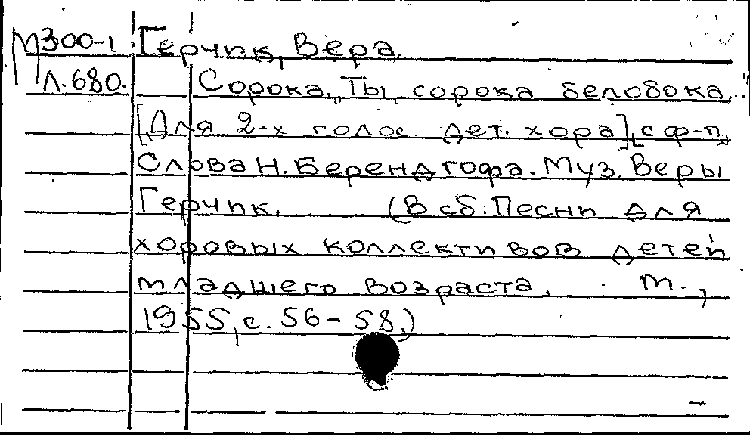 М300-1 Герчик, Вера.
Л.680. Сорока. "Ты, сорока белобока.."
[Для 2-х голос. дет. хора], с ф-п.
Слова Н. Берендгофа. Муз. Веры
Герчик. (В сб.: Песни для
хоровых коллективов детей
младшего возраста. М.,
1955, с. 56-58.)